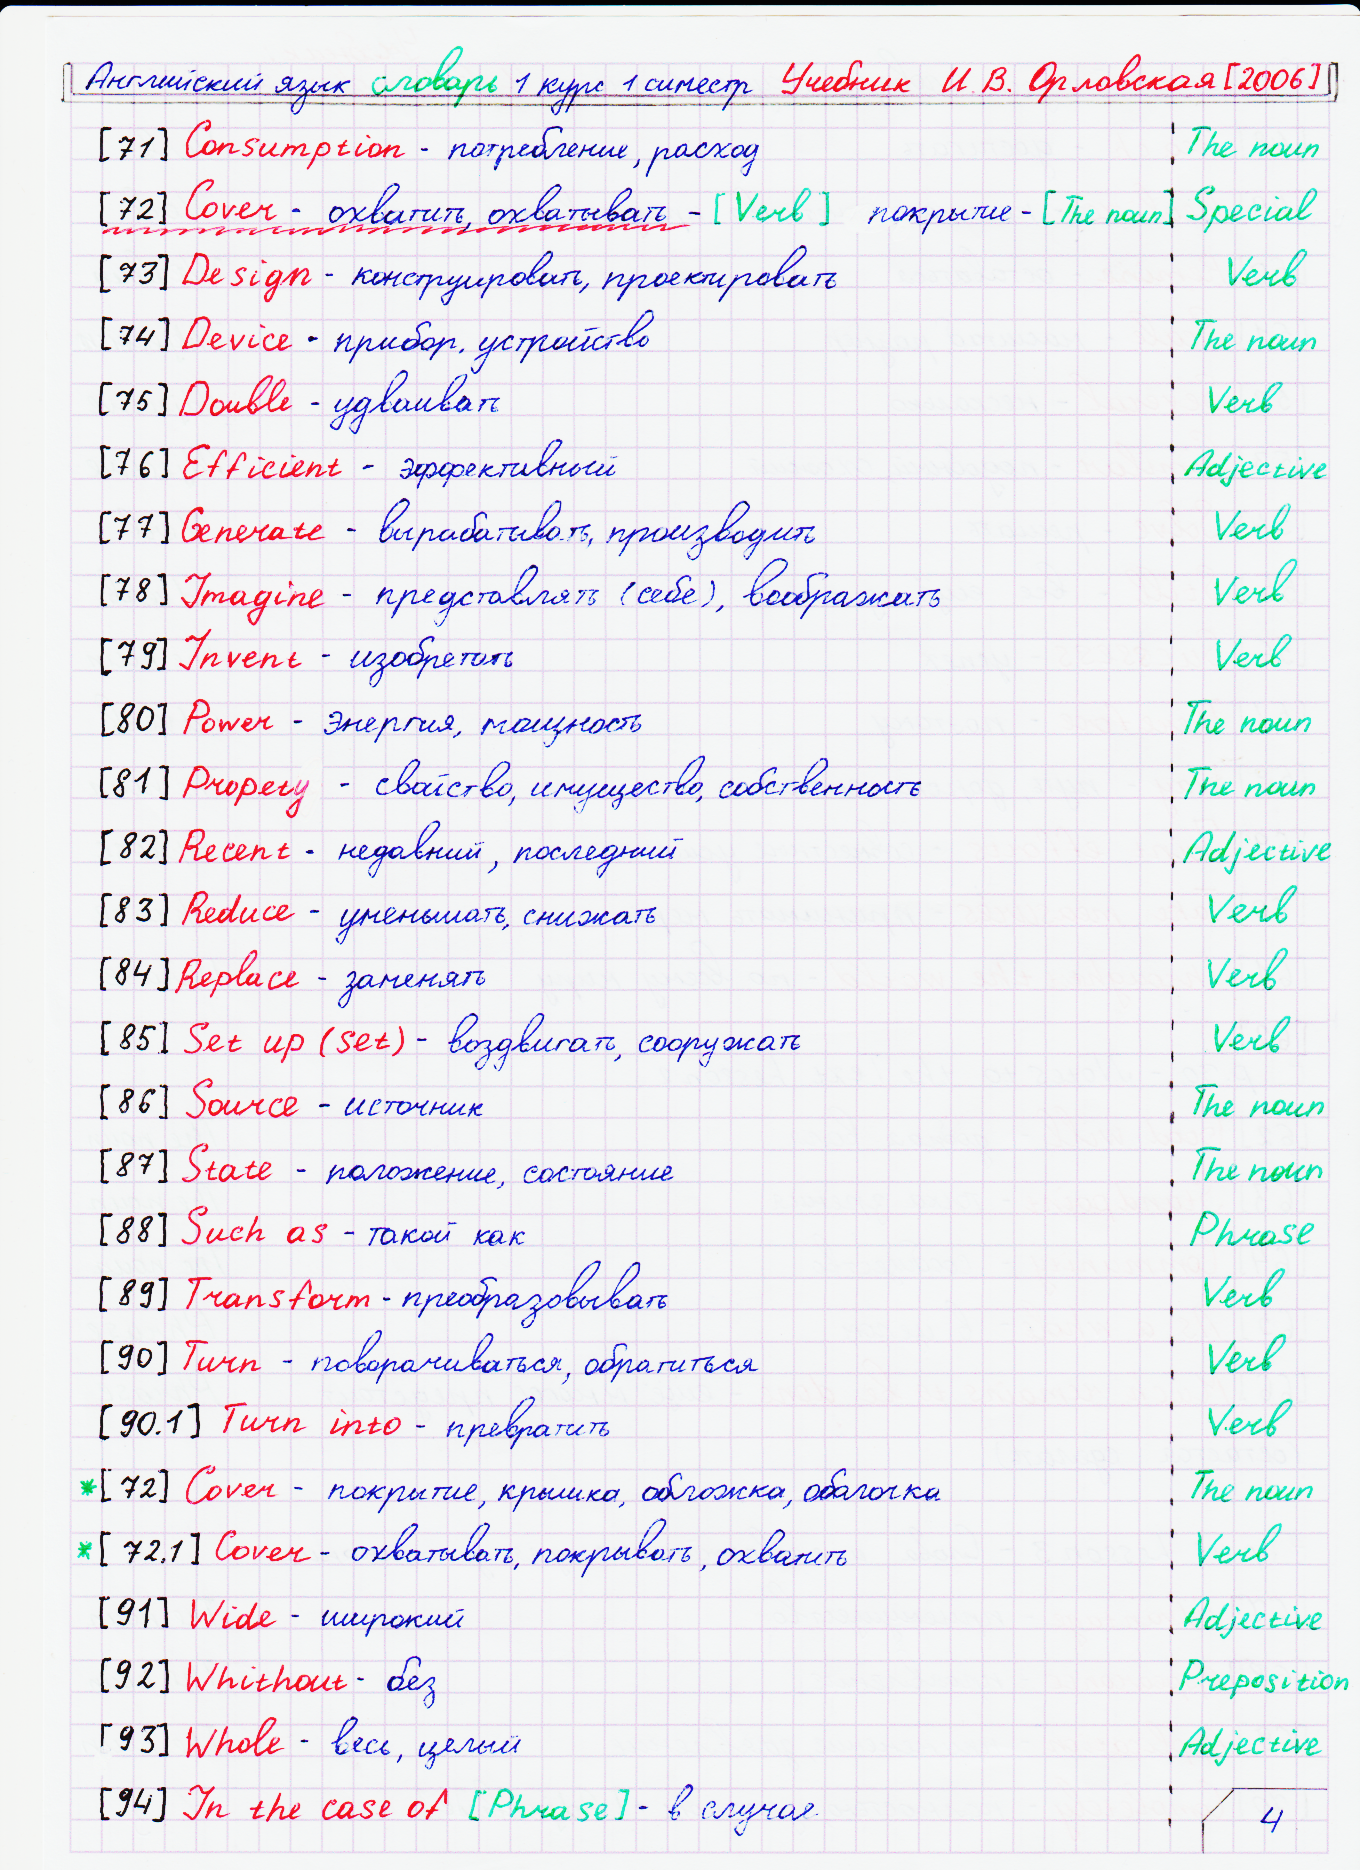 Английский язык словарь 1 курс 1 симестр Учебник И. В. Орловская [2006]
[71] Consumption - потребление, расход The noun
[72] Cover - охватить, охватывать - [Verb] покрытие - [The noun] Special
[73] Design - конструировать, проектировать Verb
[74] Device - прибор. устройство The noun
[75] Double - удваивать Verb
[76] Efficient - эффективный Adjective
[77] Generate - вырабатывать, производить Verb
[78] Imagine - представлять (себе), воображать Verb
[79] Invent - изобретать Verb
[80] Power - энергия, мощность The noun
[81] Propety - свойство, имущество, собственность The noun
[82] Recent - недавний, последний Adjective
[83] Reduce - уменьшать, снижать Verb
[84] Replace - заменять Verb
[85] Set up (set) - воздвигать, сооружать Verb
[86] Source - источник The noun
[87] State - положение, состояние The noun
[88] Such as - такой как Phrase
[89] Transform - преобразовывать Verb
[90] Turn - поворачиваться, обратиться Verb
[90.1] Turn into - превратить Verb
*[72] Cover - покрытие, крышка, обложка, оболочка The noun
*[72.1] Cover - охватывать, покрывать, охватить Verb
[91] Wide - широкий Adjective
[92] Whithout - без Preposition
[93] Whole - весь, целый Adjective
[94] In the case of [Phrase] - в случае
4